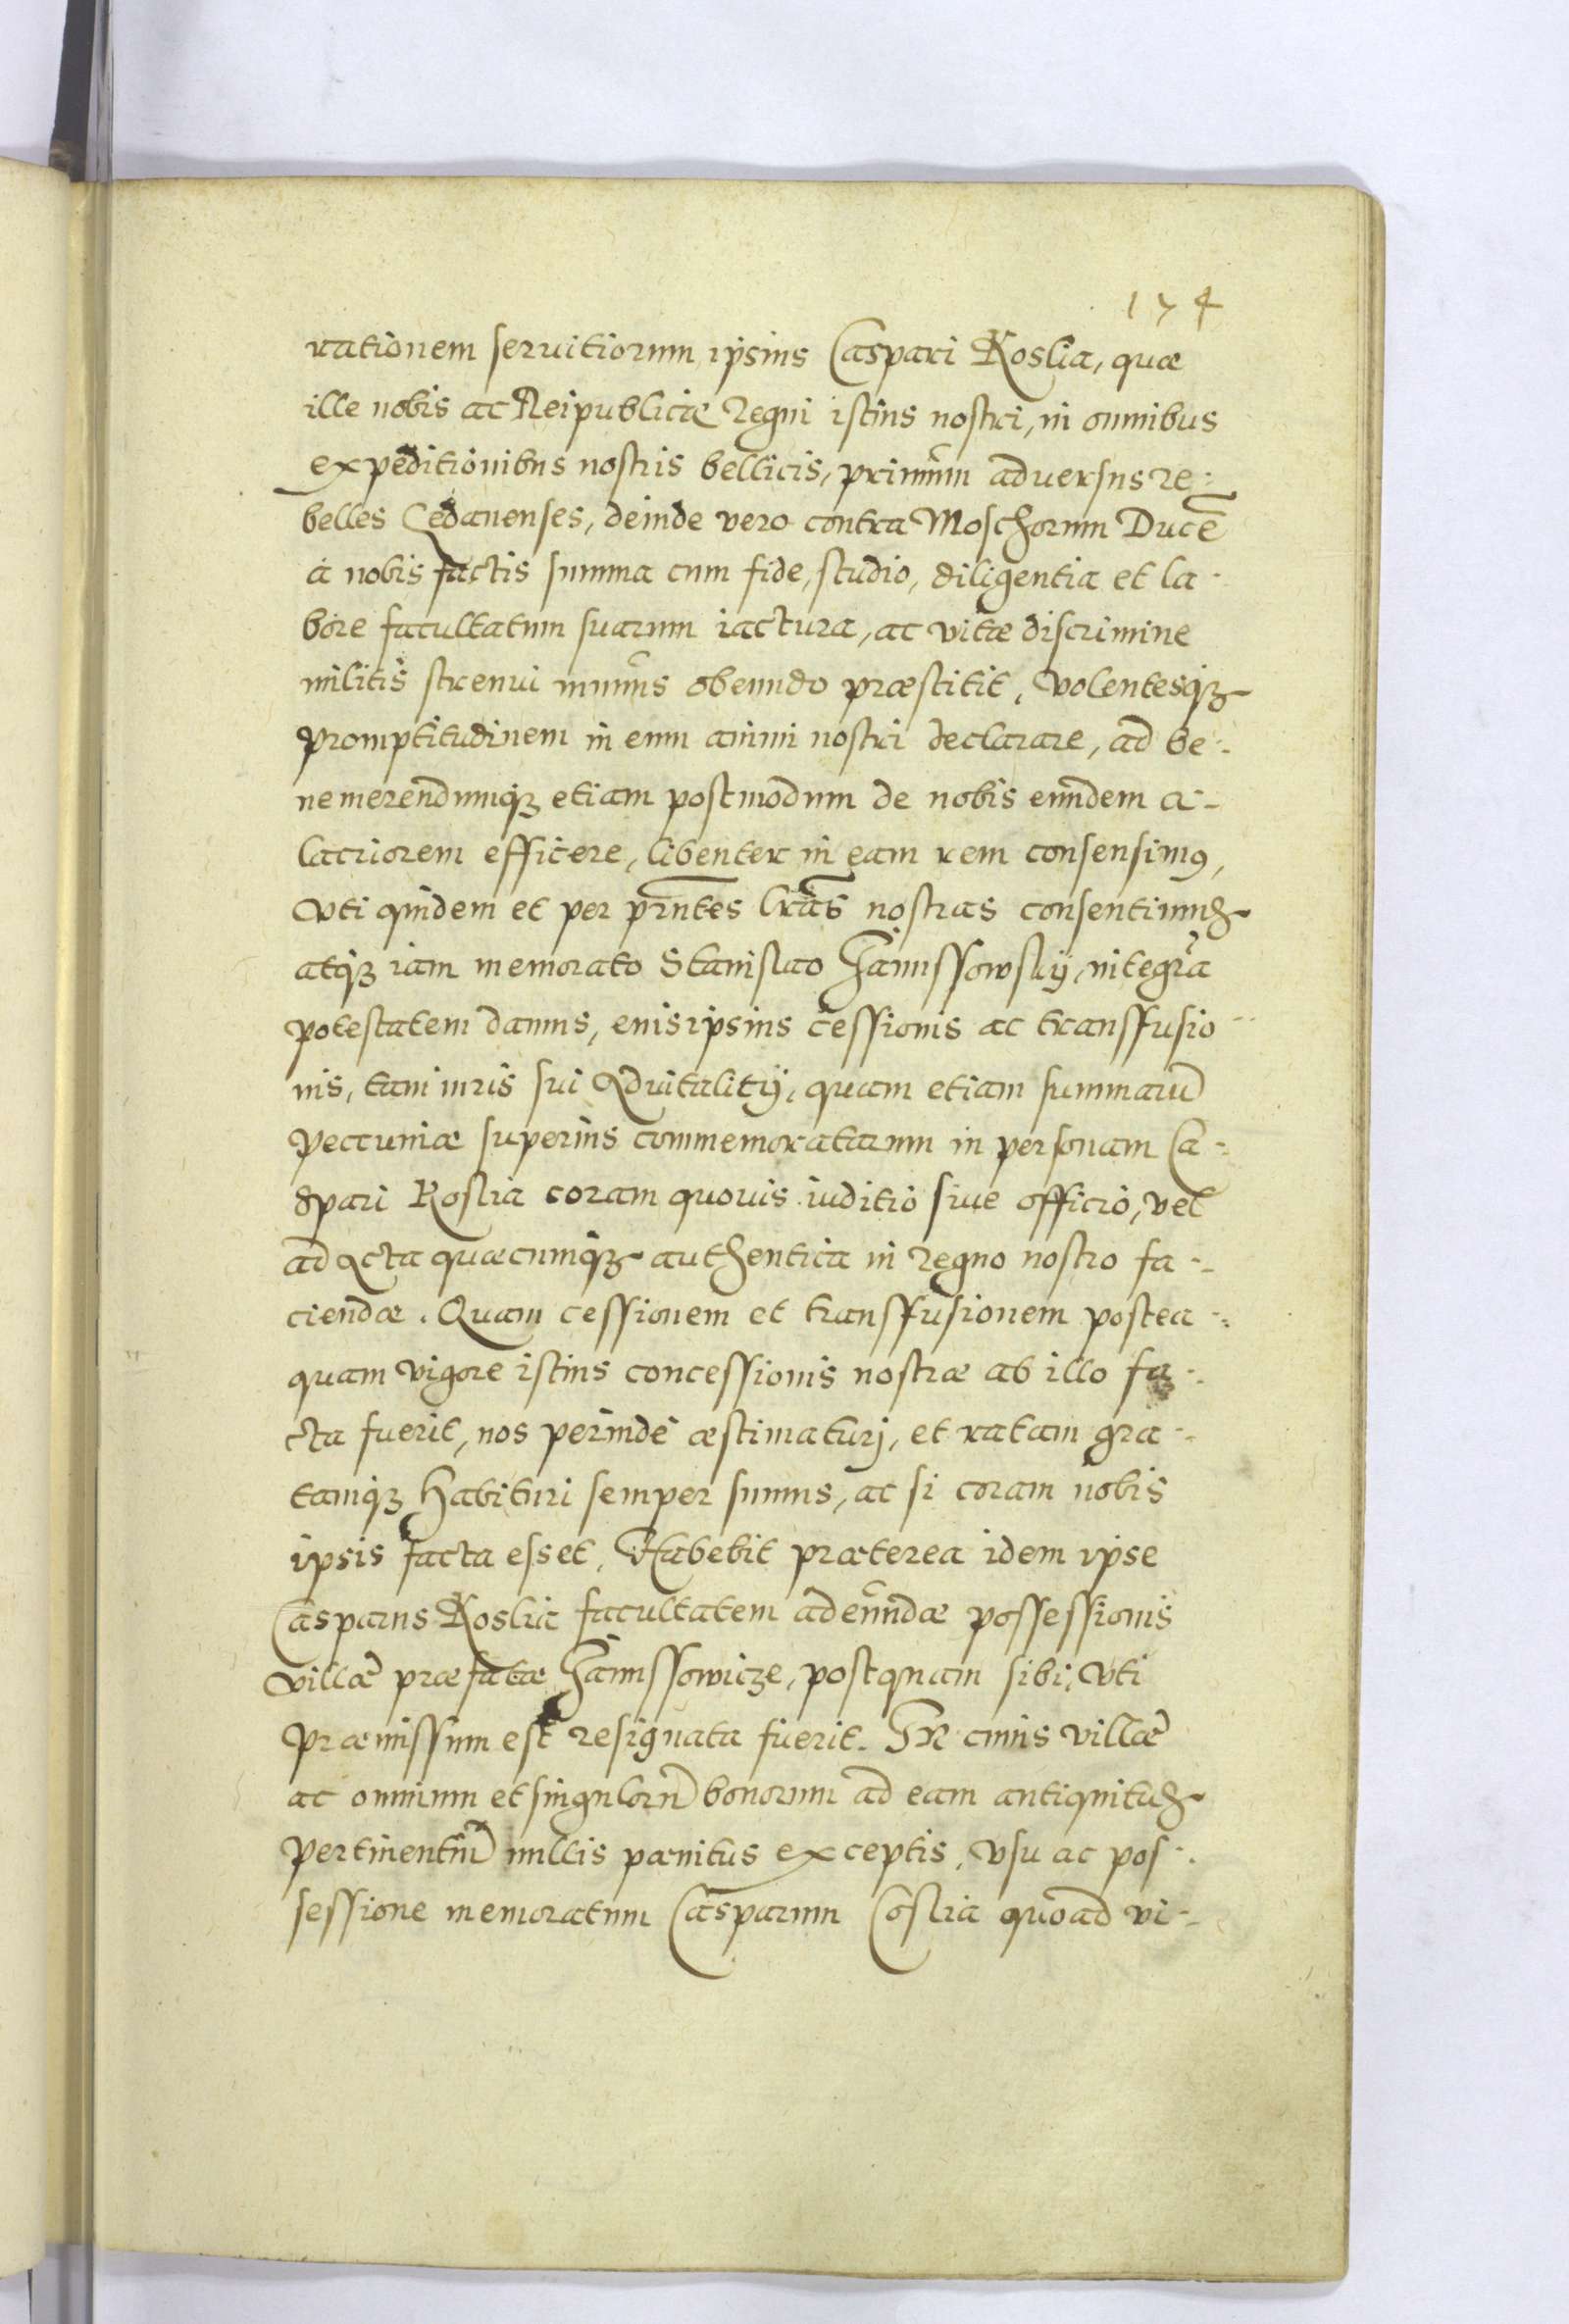 174
rationem seruitiorum ipsius Caspari Koslia, quæ
ille nobis ac Reipublicæ Regni istius nostri, in omnibus
expeditionibus nostris bellicis, primùm aduersus re-
belles Gedanenses, deinde vero contra Moschorum Ducē
à nobis factis summa cum fide, studio, diligentia et la-
bore facultatum suarum iactura, ac vitæ discrimine
militis strenui munus obeundo præstitit, Volentesqȝ
promptitudinem in eum animi nostri declarare, ad be-
nemerendumqȝ etiam postmodum de nobis eundem a-
lacriorem efficere, libenter in eam rem consensimꝰ,
Vti quidem et per pr̄ntes lr̄as nostras consentimus
atqȝ iam memorato Stanislao Janissowskij, integrā
potestatem damus, eius ipsius cessionis ac transfusio-
nis, tam iuris sui Aduitalitij, quam etiam summarū
pecuniæ superius commemoratarum in personam Ca-
spari Koslia coram quouis iuditio siue officio, vel
ad Acta quæcumqȝ authentica in Regno nostro fa-
ciendæ. Quam cessionem et transfusionem postea-
quam vigore istius concessionis nostræ ab illo fa-
cta fuerit, nos perinde æstimaturj, et ratam gra-
tamqȝ habituri semper sumus, ac si coram nobis
ipsis facta esset. Habebit præterea idem ipse
Casparus Koslia facultatem adeundæ possessionis
villæ præfatæ Janissowicze, postquam sibi, Vti
præmissum est resignata fuerit. In cuius villæ
ac omnium et singulorū bonorum ad eam antiquitus
pertinentiū nullis pænitus exceptis, Vsu ac pos-
sessione memoratum Casparum Coslia quoad vi-